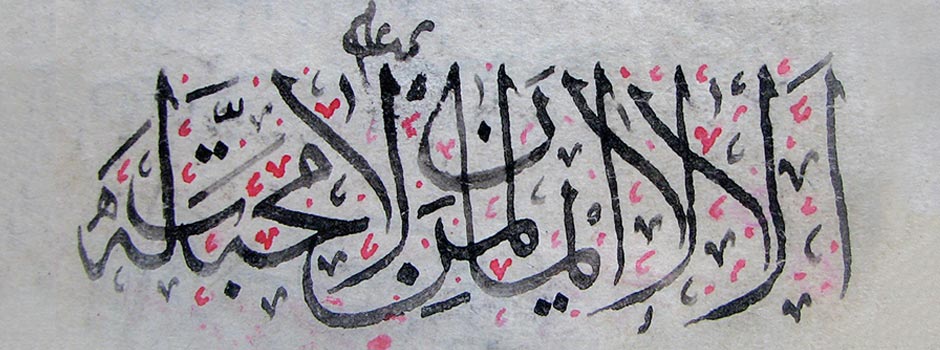 الا لا ايمان لمن لا محبة له